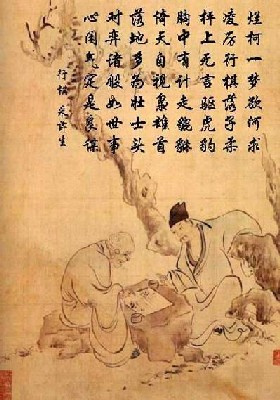 烂柯一梦欲何求
凌厉行棋落子柔
枰上无言驱虎豹
胸中有计走貔貅
倚天自视枭雄首
落地多为壮士头
对弈诸般如世事
心闲气定是良谋
行楷